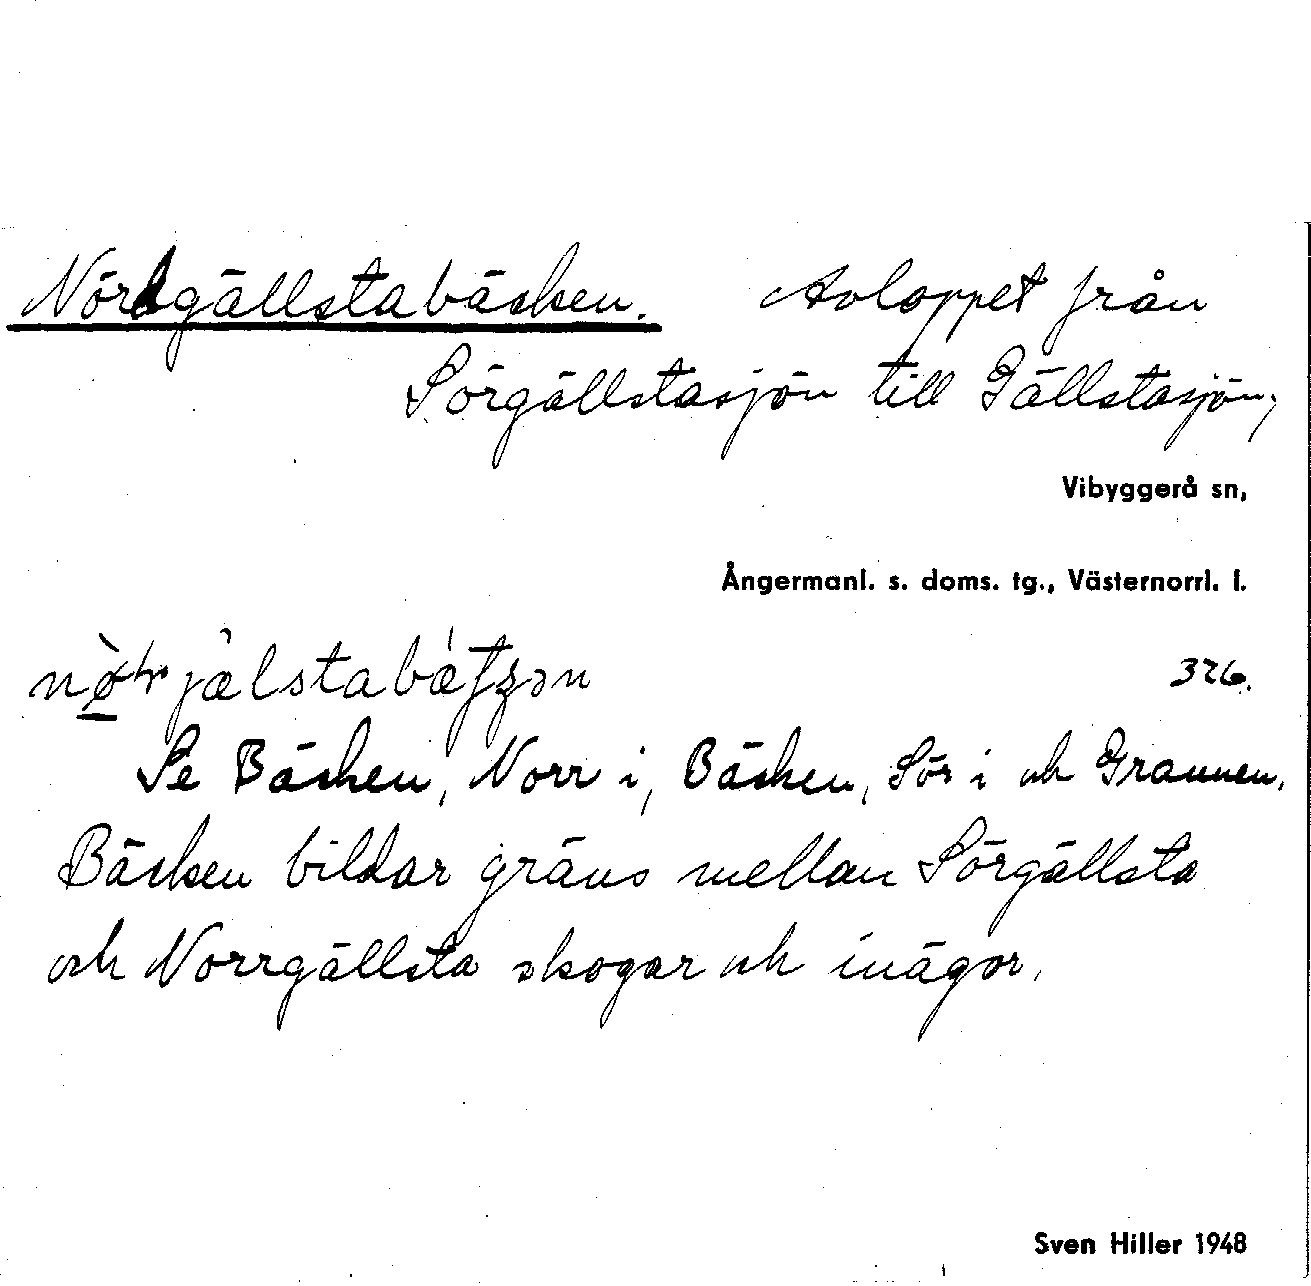 Nördgällstabäcken. Avloppet från
Sörgällstasjön till Gällstasjön,
Vibyggerå sn,
Ångermanl. s. doms. tg., Västernorrl. l.
326.
Se Bäcken, Norr i, Bäcken, Sör i och Grannen.
Bäcken bildar gräns mellan Sörgällsta
och Norrgällsta skogar och inägor.
Sven Hiller 1948